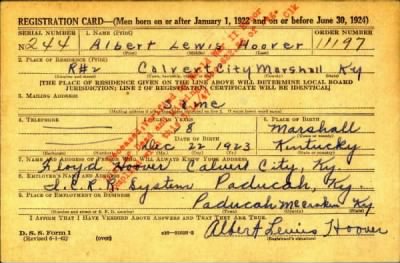 REGISTRATION CARD—(Men born on or after January 1, 1922 and on or before June 30, 1924)
SERIAL NUMBER 1. NAME (Print) ORDER NUMBER
N 244 Albert Lewis Hoover 11197
2. PLACE OF RESIDENCE (Print)
R#2 Calvert City Marshall Ky
[THE PLACE OF RESIDENCE GIVEN ON THE LINE ABOVE WILL DETERMINE LOCAL BOARD
JURISDICTION; LINE 2 OF REGISTRATION CERTIFICATE WILL BE IDENTICAL]
3. MAILING ADDRESS
Same
4. TELEPHONE 5. AGE IN YEARS 6. PLACE OF BIRTH
18 Marshall
DATE OF BIRTH
Dec 22 1923 Kentucky
7. NAME AND ADDRESS OF PERSON WHO WILL ALWAYS KNOW YOUR ADDRESS
Floyd Hoover Calvert City, Ky.
8. EMPLOYER'S NAME AND ADDRESS
I.C.R.R. System Paducah, Ky.
9. PLACE OF EMPLOYMENT OR BUSINESS
Paducah McCracken Ky
I AFFIRM THAT I HAVE VERIFIED ABOVE ANSWERS AND THAT THEY ARE TRUE.
D. S. S. Form 1
(Revised 6-1-42) (over) Albert Lewis Hoover
(Registrant's signature)